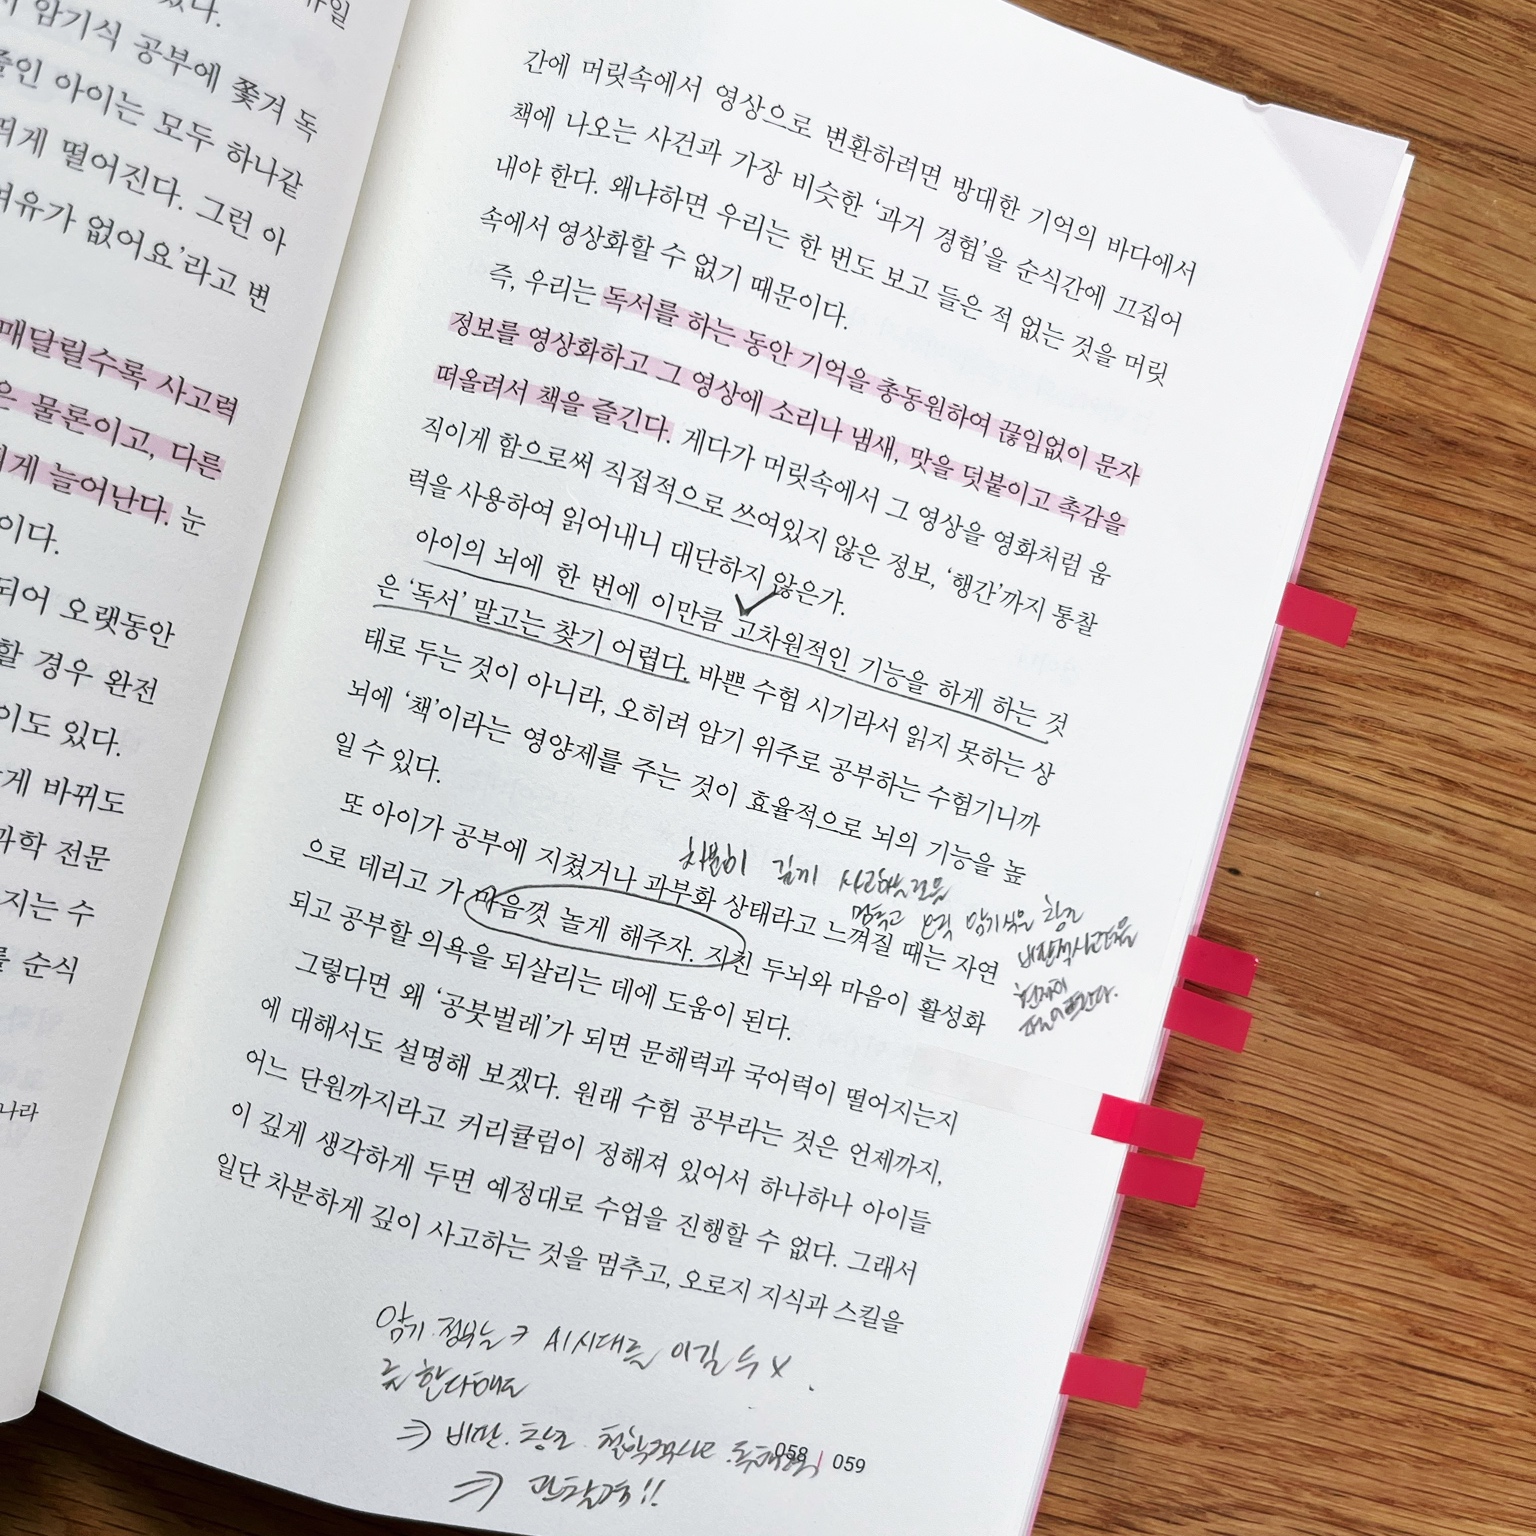 있다.
암기식 공부에 쫓겨 독
줄인 아이는 모두 하나같
떨어진다. 그런 아
여유가 없어요’라고 변
매달릴수록 사고력
은 물론이고, 다른
게 늘어난다. 눈
이다.
되어 오랫동안
할 경우 완전
이도 있다.
게 바뀌도
과학 전문
지는 수
를 순식
나라
간에 머릿속에서 영상으로 변환하려면 방대한 기억의 바다에서
책에 나오는 사건과 가장 비슷한 ‘과거 경험’을 순식간에 끄집어
내야 한다. 왜냐하면 우리는 한 번도 보고 들은 적 없는 것을 머릿
속에서 영상화할 수 없기 때문이다.
즉, 우리는 독서를 하는 동안 기억을 총동원하여 끊임없이 문자
정보를 영상화하고 그 영상에 소리나 냄새, 맛을 덧붙이고 촉감을
떠올려서 책을 즐긴다. 게다가 머릿속에서 그 영상을 영화처럼 움
직이게 함으로써 직접적으로 쓰여있지 않은 정보, ‘행간’까지 통찰
력을 사용하여 읽어내니 대단하지 않은가.
아이의 뇌에 한 번에 이만큼 고차원적인 기능을 하게 하는 것
은 ‘독서’ 말고는 찾기 어렵다. 바쁜 수험 시기라서 읽지 못하는 상
태로 두는 것이 아니라, 오히려 암기 위주로 공부하는 수험기니까
뇌에 ‘책’이라는 영양제를 주는 것이 효율적으로 뇌의 기능을 높
일 수 있다.
또 아이가 공부에 지쳤거나 과부화 상태라고 느껴질 때는 자연
으로 데리고 가 마음껏 놀게 해주자. 지친 두뇌와 마음이 활성화
되고 공부할 의욕을 되살리는 데에 도움이 된다.
차분히 깊게 사고하는 것을
멈추고 오직 암기식은 창조
비판적사고력을
현저히
떨어뜨린다.
그렇다면 왜 ‘공붓벌레’가 되면 문해력과 국어력이 떨어지는지
에 대해서도 설명해 보겠다. 원래 수험 공부라는 것은 언제까지,
어느 단원까지라고 커리큘럼이 정해져 있어서 하나하나 아이들
이 깊게 생각하게 두면 예정대로 수업을 진행할 수 없다. 그래서
일단 차분하게 깊이 사고하는 것을 멈추고, 오로지 지식과 스킬을
암기 공부는 AI시대를 이길 수 X.
한다해도
⇒ 비판. 창조. 철학적사고
⇒
058 | 059